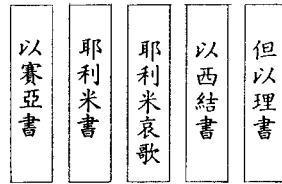 以賽亞書
耶利米書
耶利米哀歌
以西結書
但以理書